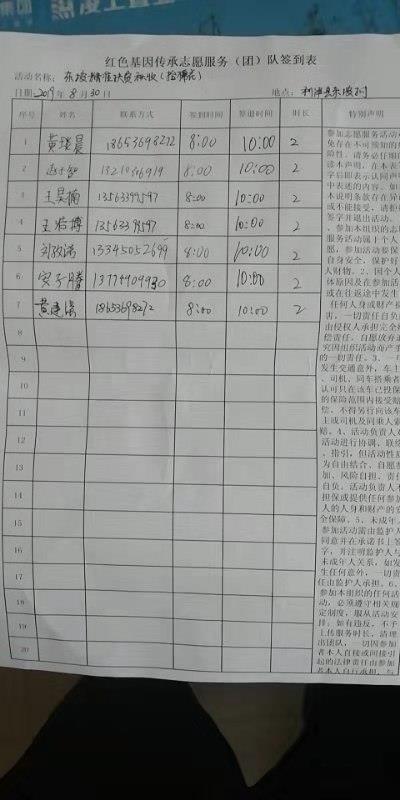 红色基因传承志愿服务（团）队签到表
活动名称：东坡精准扶贫秋收（拾棉花）
日期2019年8月30日 地点：利津县东坡村
序号 姓名 联系方式 签到时间 签退时间 时长 特别声明
1 18653698272 8:00 10:00 2
2 8:00 10:00 2
3 王昊楠 13563399597 8:00 10:00 2
4 王浩博 13563399597 8:00 10:00 2
5 13345052699 8:00 10:00 2
6 8:00 10:00 2
7 18653698272 8:00 10:00 2
8
9
10
11
12
13
14
15
16
17
18
19
20
参加志愿服务活动
免存在不可预知的
险性。请务必仔细
读本声明，在本表
字后即表示认同声
中表述的内容。如
本说明条款存在异
或不能接受，请拒
签字并退出活动。
、参加本组织的志
服务活动属于个人
愿，参加活动要保
自身安全，保护好
人财物。2、因个人
体原因及在参加活
或在往返途中发生
任何人身或财产损
害，一切责任自负
由侵权人承担完全
偿责任。自愿放弃
究因组织活动而产
的一切责任。3、一
发生交通意外，车主
、司机、同车搭乘者
认可只在该车已投保
的保险范围内接受赔
偿。不得另行向该车
主或司机及同乘人索
赔。4、活动负责人
活动进行协调、联络
、指引，但活动性质
为自由结合、自愿参
加、风险自担、责任
自负。活动负责人不
担保或提供任何参加
人的人身和财产的安
全保障。5、未成年人
参加活动需由监护人
同意并在承诺书上签
字，并注明监护人与
未成年人关系，如发
生任何意外，一切责
任由监护人承担。6、
参加本组织的任何活
动，必须遵守相关规
定制度，服从活动安
排。如有违反，不予
上传服务时长，清理
出团队，一切因参加
者本人直接或间接引
起的法律责任由参加
者本人自行承担，与